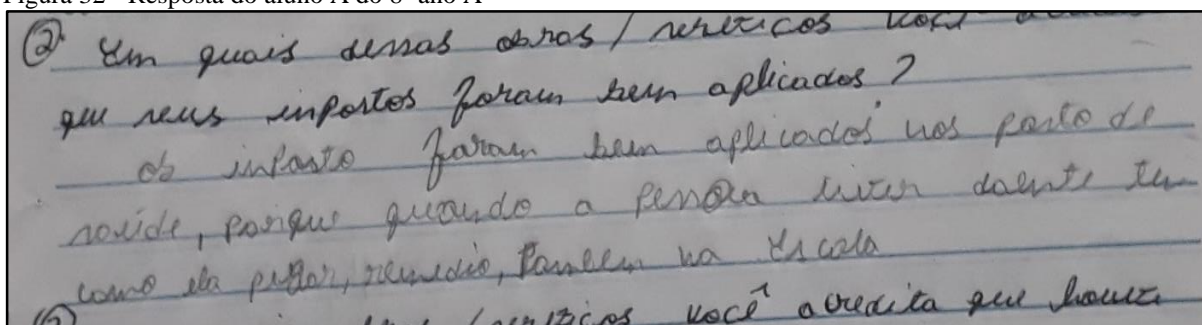 Figura 32 - Resposta do aluno A do 8º ano A
② Em quais dessas obras / serviços você
que seus inpostos foram bem aplicados ?
os inposto foram bem aplicados nos posto de
saúde, porque quando a pessoa tiver doente tem
como ela pegar, remedio, também na escola
você acredita que houve